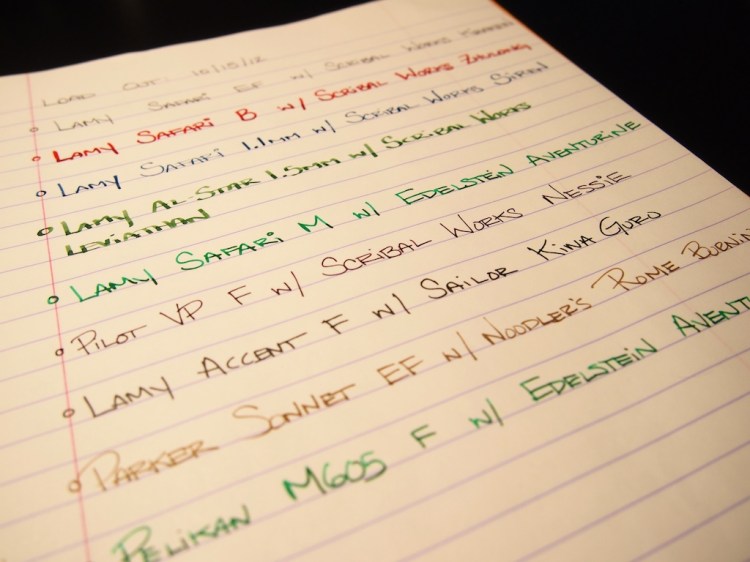 LOAD OUT 10/15/12
LAMY SAFARI EF W/ SCRIBAL WORKS
LAMY SAFARI B W/ SCRIBAL WORKS
LAMY SAFARI 1.1MM W/ SCRIBAL WORKS SIREN
LAMY AL-STAR 1.5MM W/ SCRIBAL WORKS
LEVIATHAN
LAMY SAFARI M W/ EDELSTEIN AVENTURINE
PILOT VP F W/ SCRIBAL WORKS NESSIE
LAMY ACCENT F W/ SAILOR KINA GURO
PARKER SONNET EF W/ NOODLER'S ROME BURNIN
PELIKAN M605 F W/ EDELSTEIN AVENT